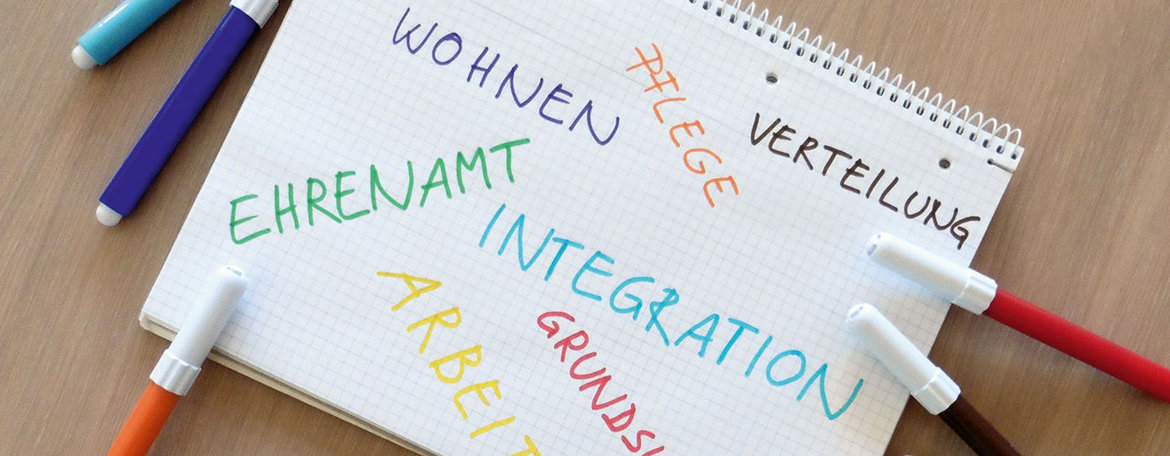 WOHNEN
PFLEGE
VERTEILUNG
EHRENAMT
INTEGRATION
ARBEIT
GRUNDSI